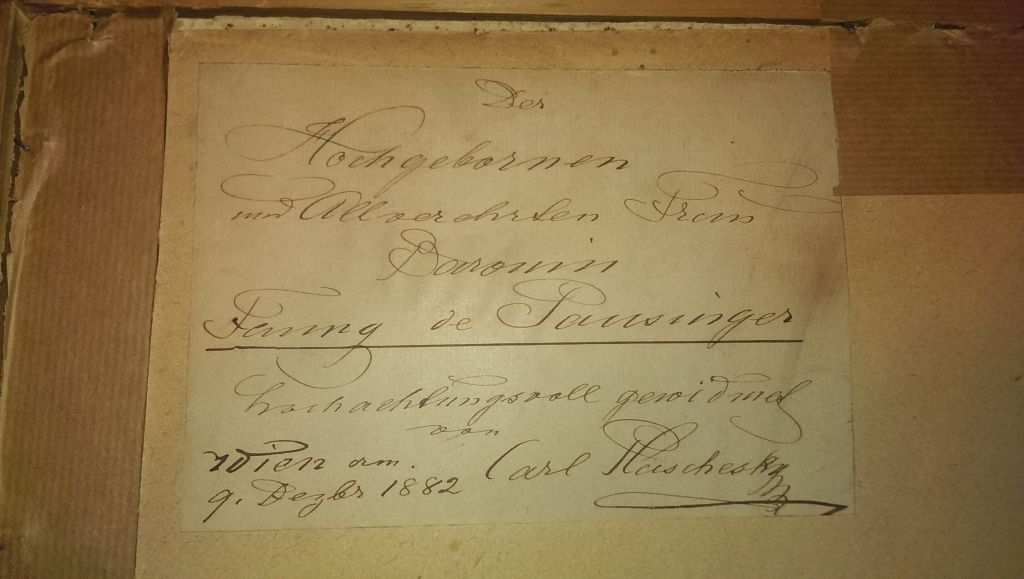 Der
Hochgebornen
und Allverehrten Frau
Baronin
Fanny de Pausinger
hochachtungsvoll gewidmet
von
Wien am.
Carl
9. Dezbr 1882